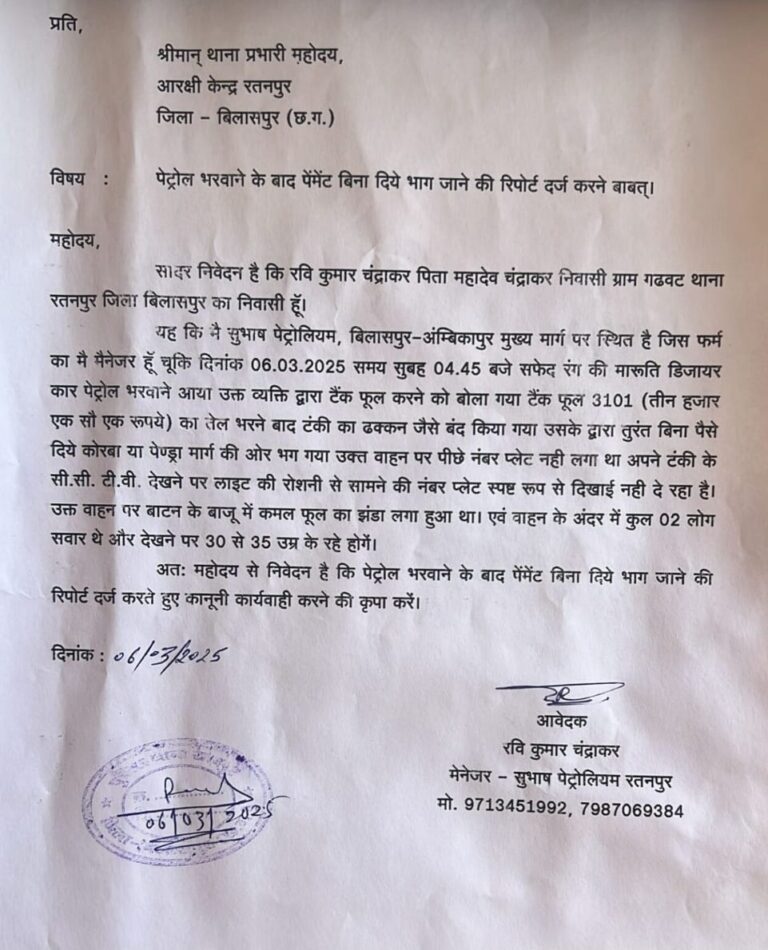 प्रति,
श्रीमान् थाना प्रभारी महोदय,
आरक्षी केन्द्र रतनपुर
जिला – बिलासपुर (छ.ग.)
विषय : पेट्रोल भरवाने के बाद पेंमेंट बिना दिये भाग जाने की रिपोर्ट दर्ज करने बाबत्।
महोदय,
सादर निवेदन है कि रवि कुमार चंद्राकर पिता महादेव चंद्राकर निवासी ग्राम गढवट थाना
रतनपुर जिला बिलासपुर का निवासी हूँ।
यह कि मै सुभाष पेट्रोलियम, बिलासपुर–अंम्बिकापुर मुख्य मार्ग पर स्थित है जिस फर्म
का मै मैनेजर हूँ चूकि दिनांक 06.03.2025 समय सुबह 04.45 बजे सफेद रंग की मारूति डिजायर
कार पेट्रोल भरवाने आया उक्त व्यक्ति द्वारा टैंक फूल करने को बोला गया टैंक फूल 3101 (तीन हजार
एक सौ एक रूपये) का तेल भरने बाद टंकी का ढक्कन जैसे बंद किया गया उसके द्वारा तुरंत बिना पैसे
दिये कोरबा या पेण्ड्रा मार्ग की ओर भग गया उक्त वाहन पर पीछे नंबर प्लेट नही लगा था अपने टंकी के
सी.सी. टी.वी. देखने पर लाइट की रोशनी से सामने की नंबर प्लेट स्पष्ट रूप से दिखाई नही दे रहा है।
उक्त वाहन पर बाटन के बाजू में कमल फूल का झंडा लगा हुआ था। एवं वाहन के अंदर में कुल 02 लोग
सवार थे और देखने पर 30 से 35 उम्र के रहे होगें।
अतः महोदय से निवेदन है कि पेट्रोल भरवाने के बाद पेंमेंट बिना दिये भाग जाने की
रिपोर्ट दर्ज करते हुए कानूनी कार्यवाही करने की कृपा करें।
दिनांक : 06/03/2025
आवेदक
रवि कुमार चंद्राकर
मेनेजर – सुभाष पेट्रोलियम रतनपुर
मो. 9713451992, 7987069384
06/03/2025